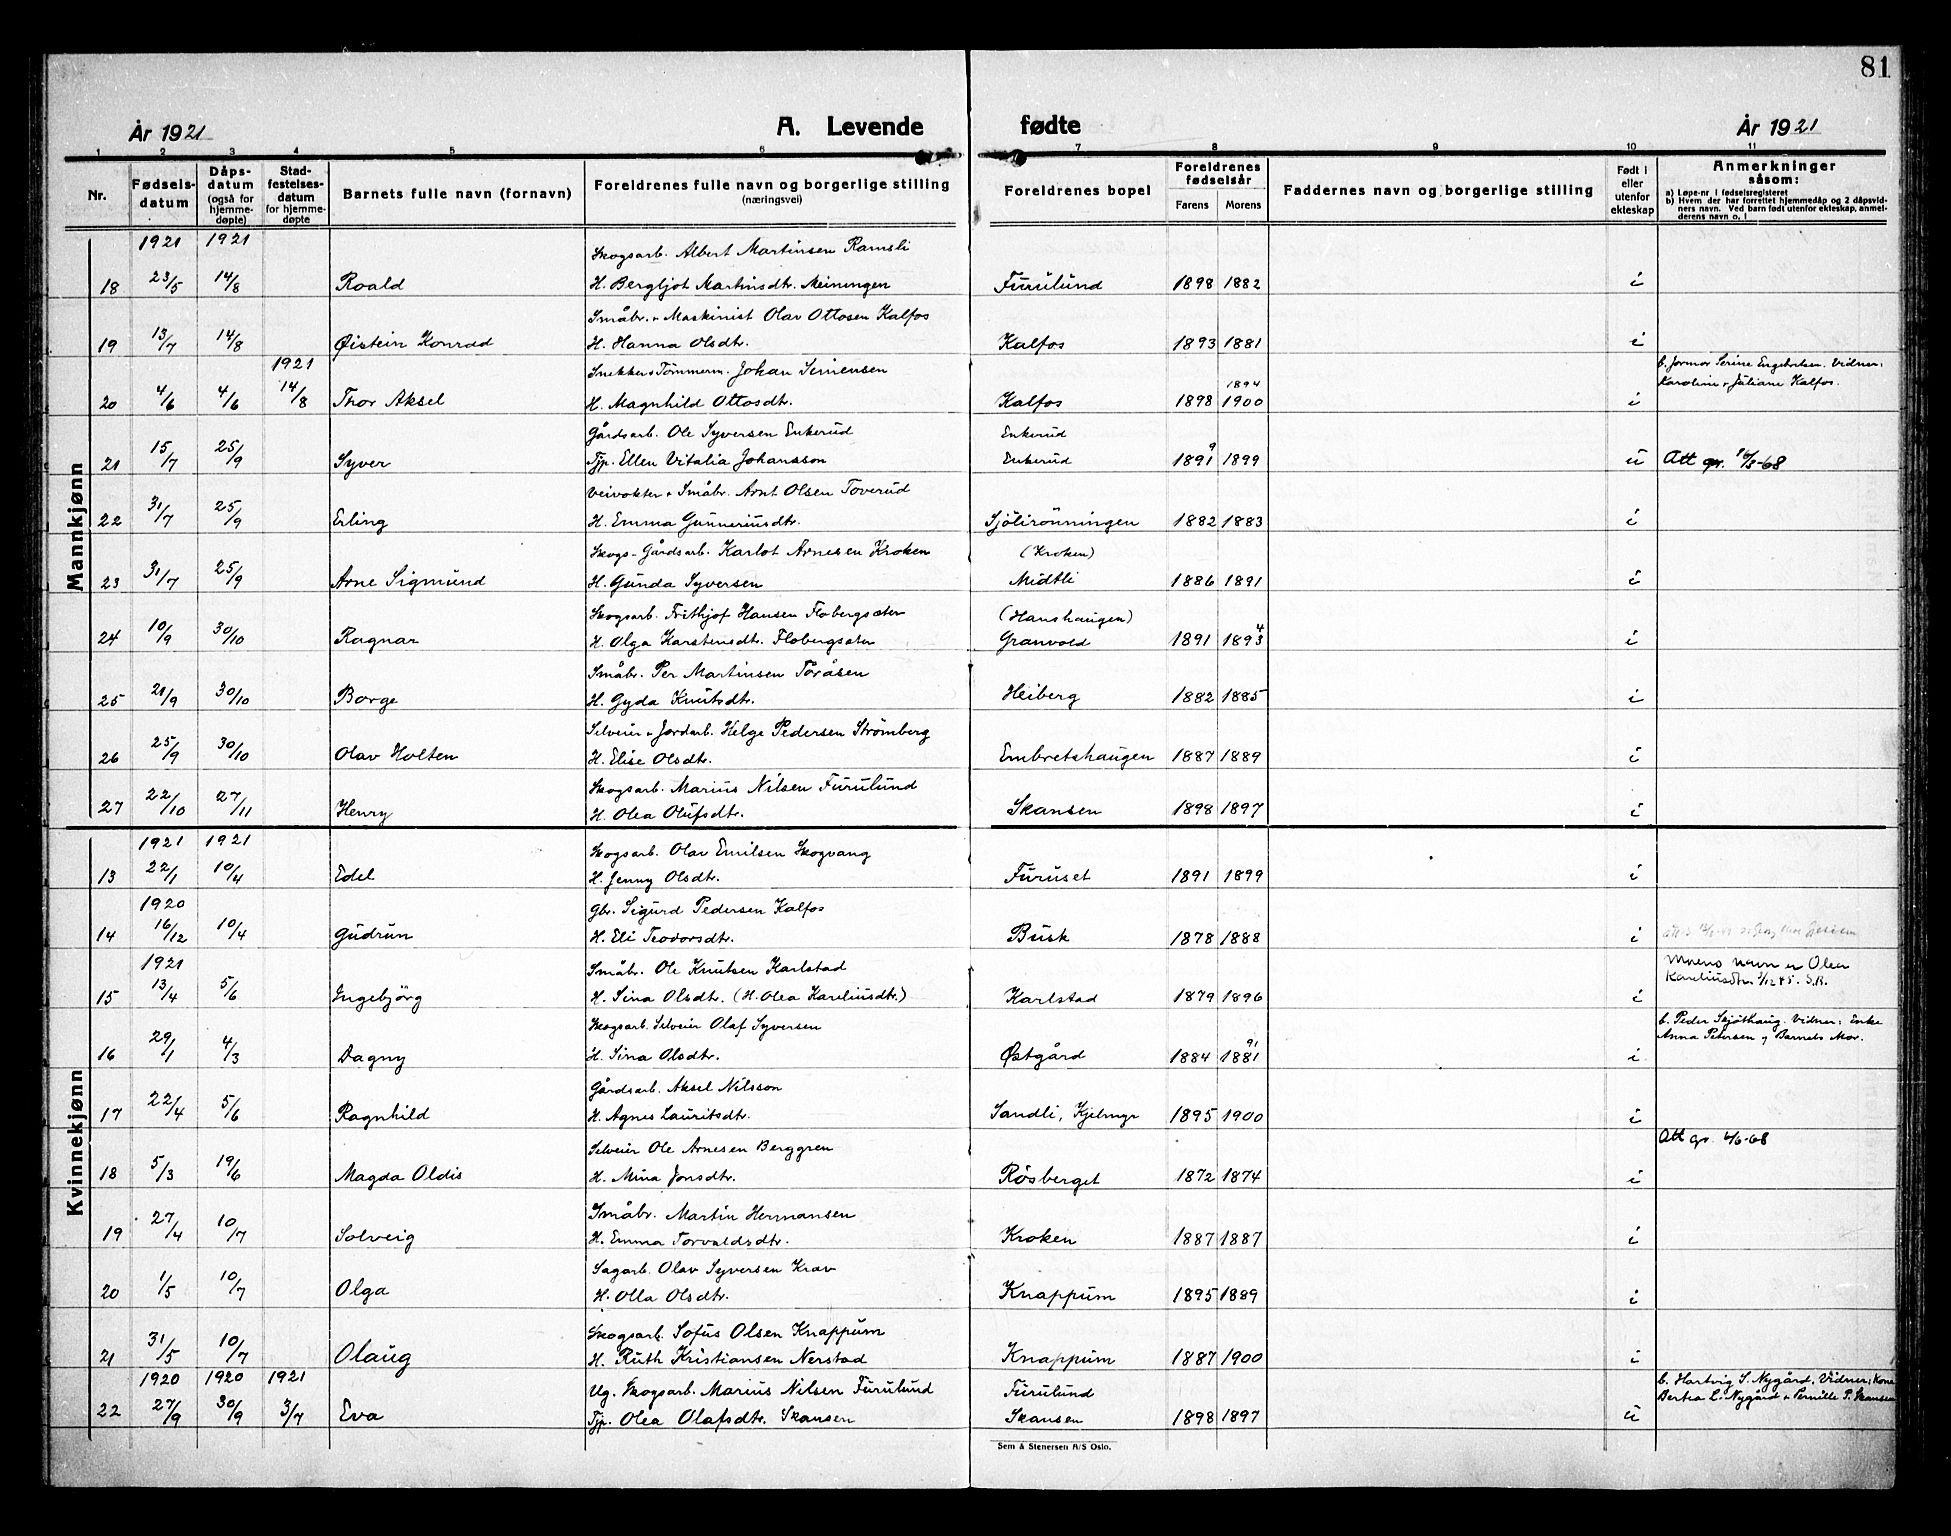 81
År 1921 A. Levende fødte År 1921
1 2 3 4 5 6 7 8 9 10 11
Nr. Fødselsdatum Dåpsdatum (også for hjemmedøpte) Stadfestelsesdatum for hjemmedøpte Barnets fulle navn (fornavn) Foreldrenes fulle navn og borgerlige stilling (næringsvei) Foreldrenes bopel Foreldrenes fødselsår Farens Morens Faddernes navn og borgerlige stilling Født i eller utenfor ekteskap Anmerkninger såsom: a) Løpe-nr. i fødselsregisteret b) Hvem der har forrettet hjemmedåp og 2 dåpsvidners navn. Ved barn født utenfor ekteskap, anmelderens navn o. l
Mannkjønn
1921 1921 Skogsarb. Albert Martinsen Ramsli
18 23/5 14/8 Roald H. Bergljot Martinsdtr. Meiningen Furulund 1898 1882 i
Småbr. + Maskinist Olav Ottosen Kalfos
19 13/7 14/8 Øistein Konrad H. Hanna Olsdtr. Kalfos 1893 1881 i
1921 Snekker + Tømmerm. Johan Simensen 1894 b. Jormor Serine Engebretsen. Vidner:
20 4/6 4/6 14/8 Thor Aksel H. Magnhild Ottosdtr. Kalfos 1898 1900 i Karoline + Juliane Kalfos.
Gårdsarb. Ole Syversen Enkerud Enkerud 9
21 15/7 25/9 Syver Tjp. Ellen Vitalia Johansson Enkerud 1891 1899 u Att gr. 16/3-68
Veivokter + Småbr. Arnt Olsen Toverud
22 31/7 25/9 Erling H. Emma Gunneriusdtr. Sjölirönningen 1882 1883 i
Skogs- Gårdsarb. Karlot Arnesen Kroken (Kroken)
23 31/7 25/9 Arne Sigmund H. Gunda Syversen Midtli 1886 1891 i
Skogsarb. Frithjof Hansen Flobergsæter (Hanshaugen) 4
24 10/9 30/10 Ragnar H. Olga Karstensdtr. Flobergsæter Granvold 1891 1893 i
Småbr. Per Martinsen Toråsen
25 21/9 30/10 Borge H. Gyda Knutsdtr. Heiberg 1882 1885 i
Selveier + Jordarb. Helge Pedersen Strømberg
26 25/9 30/10 Olav Holten H. Elise Olsdtr. Embretshaugen 1887 1889 i
Skogsarb. Marius Nilsen Furulund
27 22/10 27/11 Henry H. Olea Olufsdtr. Skansen 1898 1897 i
Kvinnekjønn
1921 1921 Skogsarb. Olav Emilsen Skogvang
13 22/1 10/4 Edel H. Jenny Olsdtr. Furuset 1891 1899 i
1920 Gbr. Sigurd Pedersen Kalfos
14 16/12 10/4 Gudrun H. Eli Teodorsdtr. Busk 1878 1888 i
1921 Småbr. Ole Knutsen Karlstad Morens navn er Olea
15 13/4 5/6 Ingebjörg H. Sina Olsdtr. (H. Olea Kareliusdtr.) Karlstad 1879 1896 i Kareliusdtr
Skogsarb. Selveier Olaf Syversen 91 b. Peder Skjøthaug. Vidner: Enke
16 29/1 4/3 Dagny H. Sina Olsdtr. Østgård 1884 1881 i Anna Petersen og Barnets Mor.
Gårdsarb. Aksel Nilsson
17 22/4 5/6 Ragnhild H. Agnes Lauritsdtr. Sandli, Kjelmyr 1895 1900 i
Selveier Ole Arnesen Berggren Att gr. 4/6-68
18 5/3 19/6 Magda Oldis H. Mina Jonsdtr. Røsberget 1872 1874 i
Småbr. Martin Hermansen
19 27/4 10/7 Solveig H. Emma Torvaldsdtr. Kroken 1887 1887 i
Sagarb. Olav Syversen Krav
20 1/5 10/7 Olga H. Olla Olsdtr. Knappum 1895 1889 i
Skogsarb. Sofus Olsen Knappum
21 31/5 10/7 Olaug H. Ruth Kristiansen Nerstad Knappum 1887 1900 i
1920 1920 1921 Ug. Skogsarb. Marius Nilsen Furulund Furulund b. Hartvig S. Nygård. Vidner: Kone
22 27/9 30/9 3/7 Eva Tjp. Olea Olafsdtr. Skansen Skansen 1898 1897 u Bertea L. Nygård + Pernille P. Skansen
Sem & Stenersen A/S Oslo.